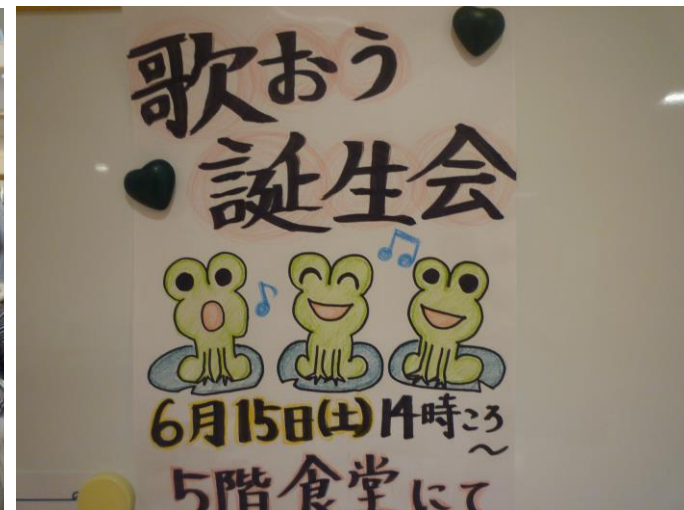 歌おう
誕生会
6月15日(土)14時ころ
～
5階食堂にて